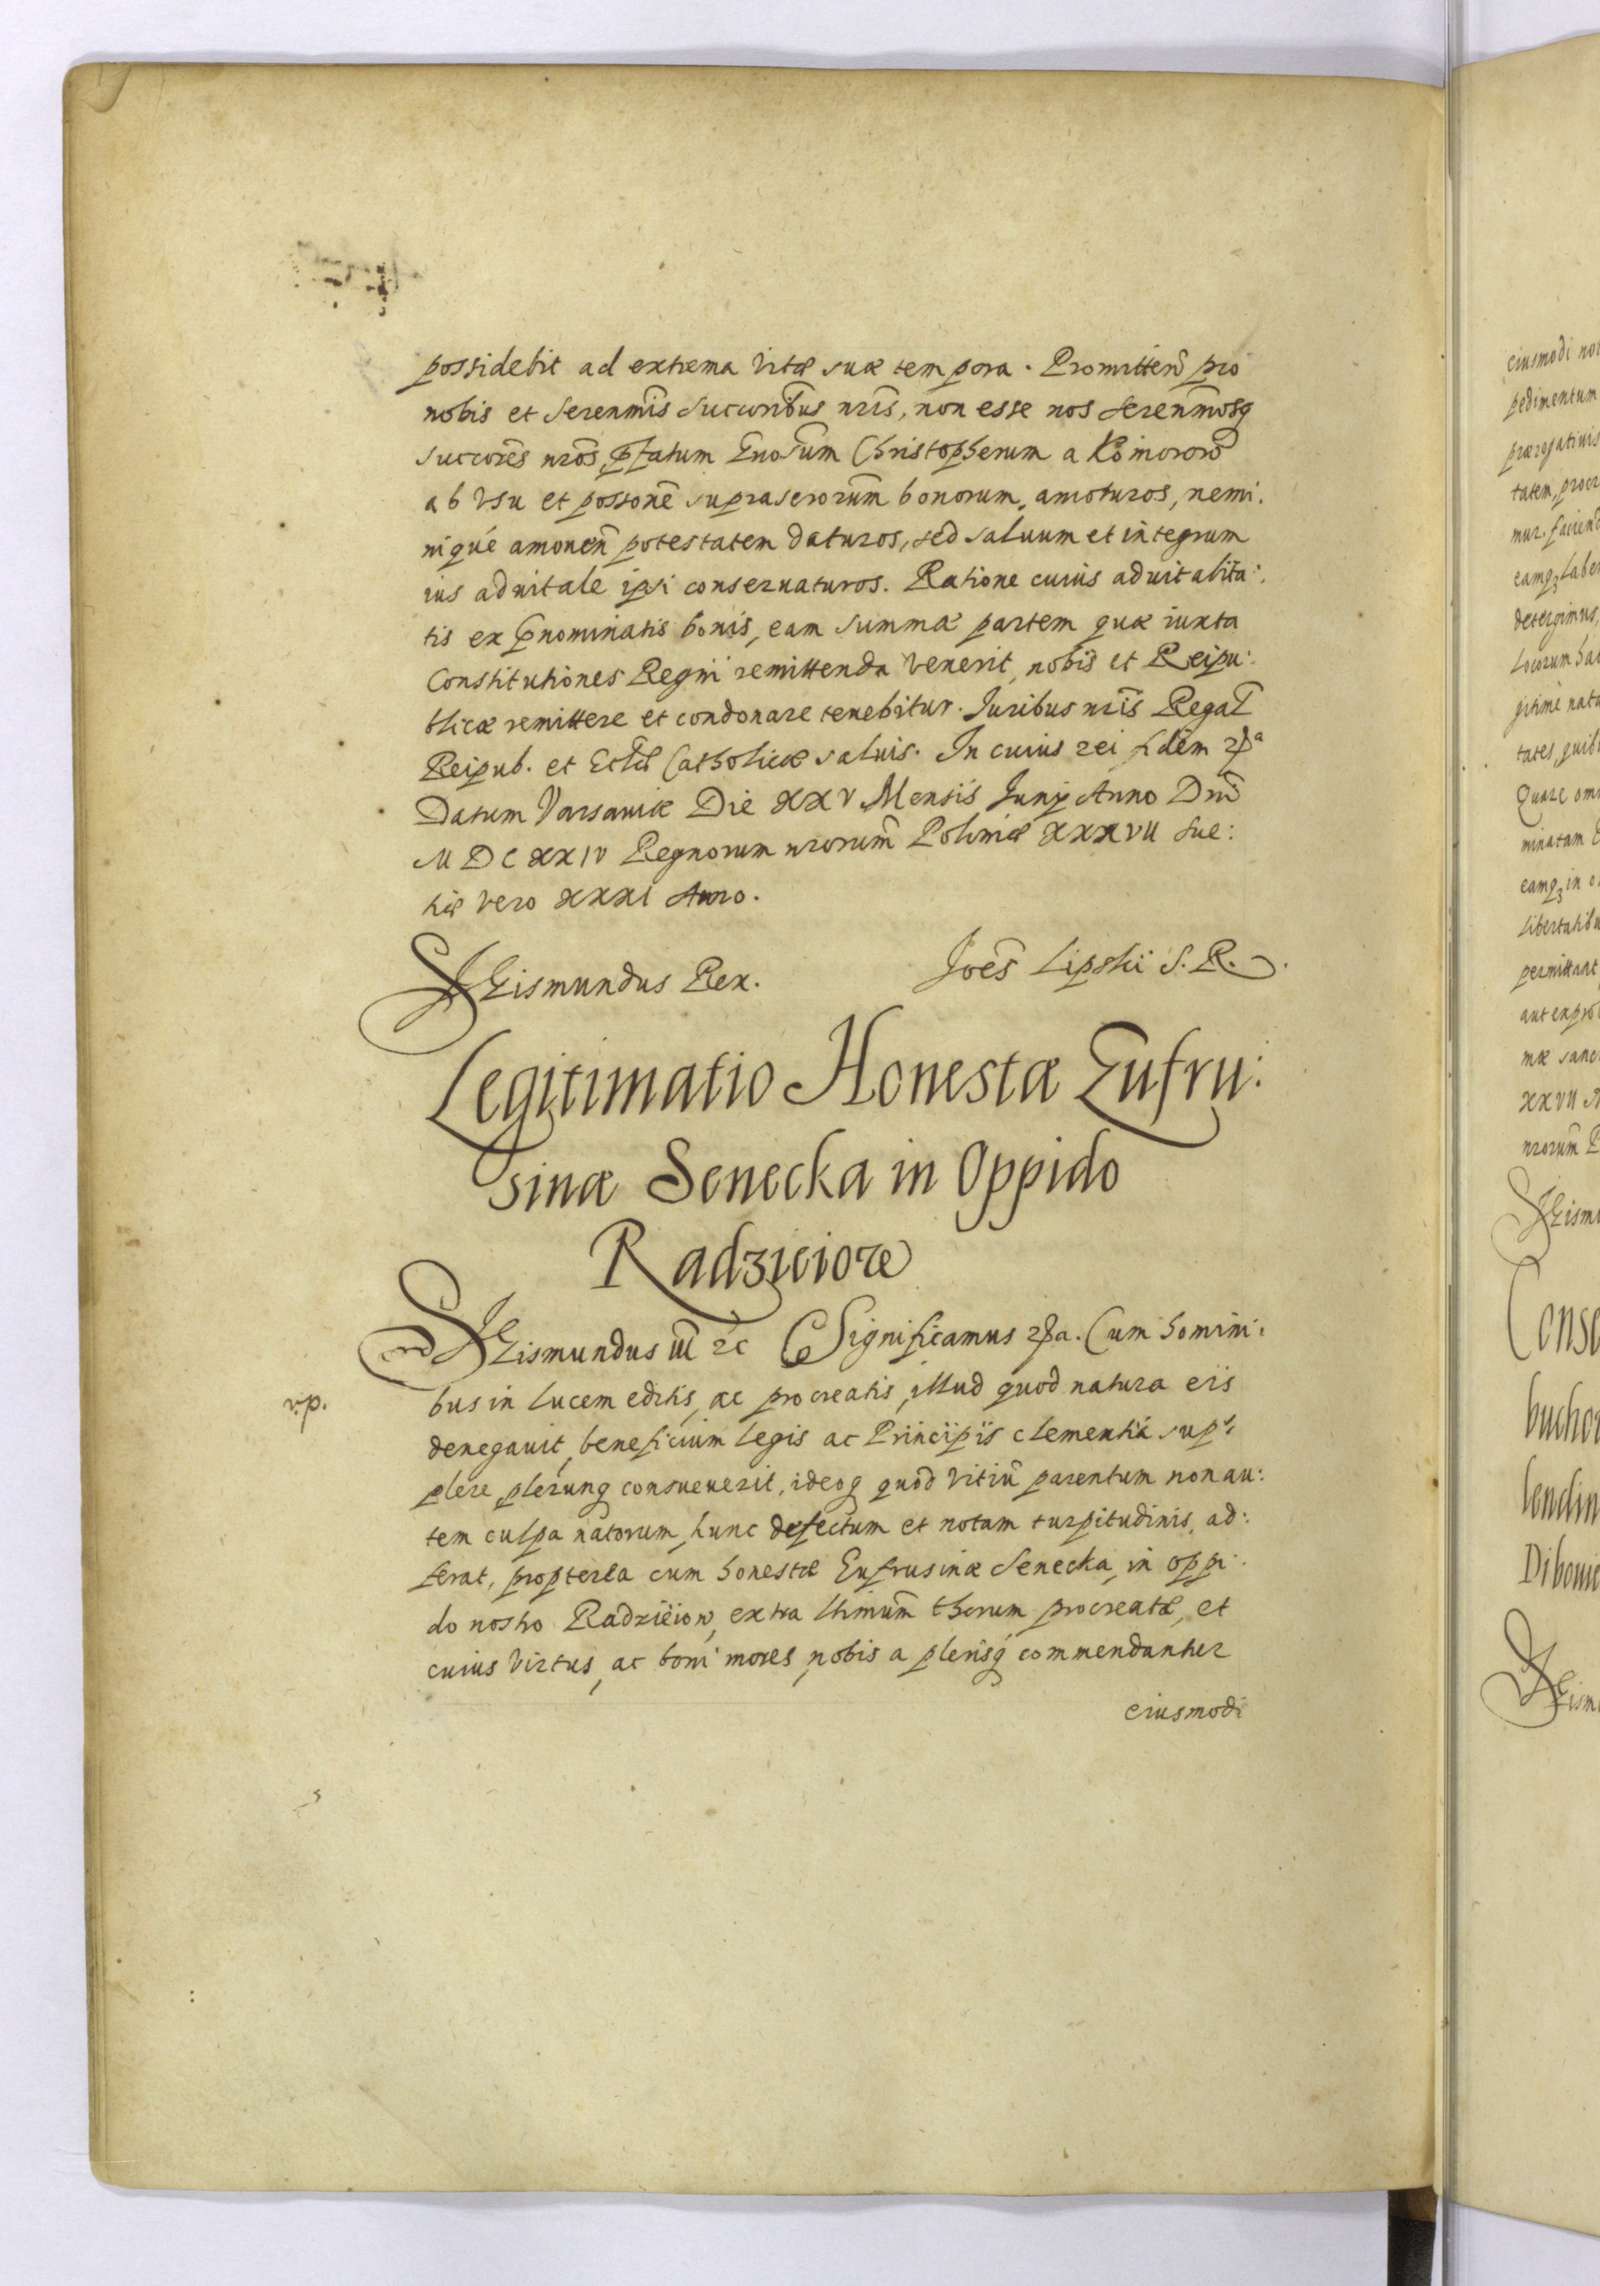 possidebit ad extrema vitæ suæ tempora. Promitten̄ pro
nobis et Serenm̄is Succoribus nr̄is, non esse nos Serenm̄osq
succores nros, pfatum Gnosum Christopherum a Komororo
ab vsu et possone suprascrorum bonorum, amoturos, nemi:
nique amonen potestatem daturos, sed saluum et integrum
ius aduitale ipsi conseruaturos. Ratione cuius aduitalita:
tis ex pnominatis bonis, eam summæ partem quæ iuxta
Constitutiones Regni remittenda venerit, nobis et Reipu:
blicæ remittere et condonare tenebitur. Iuribus nris Regal
Reipub. et Eclæ Catholicæ saluis. In cuius rei fidem
Datum Varsauiæ Die XXV Mensis Iunij Anno Dni
M DC XXIV Regnorum nrorum Poloniæ XXXVII Sue:
tiæ vero XXXI Anno.
Sigismundus Rex.
Joes Lipski S. R.
Legitimatio Honestæ Eufru:
sinæ Senecka in Oppido
Radzieiore
Sigismundus III &c Significamus &a. Cum homini:
bus in lucem editis, ac procreatis, illud quod natura eis
v.p.
denegauit, beneficium legis ac Principijs clementiâ sup:
plere, plerunq consueuerit, ideoq quod vitiu parentum non au:
tem culpa natorum, hunc defectum et notam turpitudinis, ad:
ferat, propterea cum honestæ Eufrusinæ Senecka, in oppi:
do nostro Radzieiow, extra ltimum thorum procreatæ, et
cuius virtus, ac boni mores, nobis a plerisq commendantur
eiusmodi
eiusmodi
pedimentum
prærogatiuis
tatem,
mur.
eamq
detergimus,
Locorum
tates, quibu
Quare
minatam
eamq in
libertatibu
permittant
XXVII
nrorum
Sigismu
Conse
lendin
Sigism